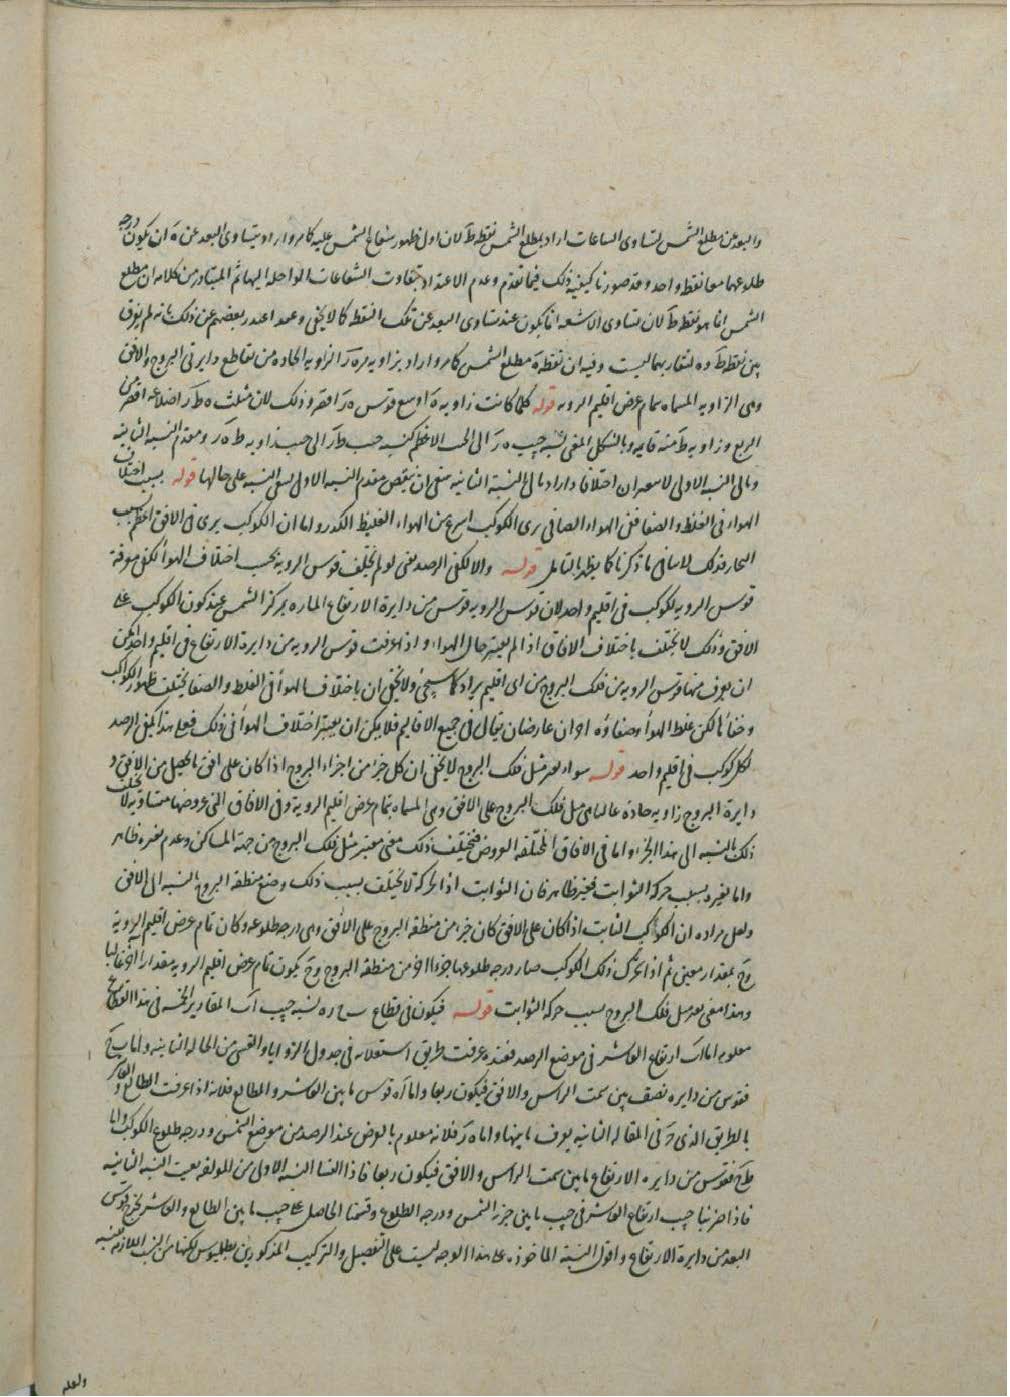 والبعد عن مطلع الشمس لتساوى الساعات اراد بمطلع الشمس نقطة ط لان اول ظهور شعاع الشمس عليه كما مر واراد بتساوى البعد عن ه ان يكون درجه
طلوعهما معا نقطه واحده وقد صورنا كيفية ذلك فيما تقدم وعدم الاعتداد بتفاوت الشعاعات الواصله اليها ثم المتبادر من كلامه ان مطلع
الشمس انما هو نقطه ط لان تساوى الاشعه انما يكون عند تساوى البعد عن تلك النقطه كما لا يخفى وعند اعتذر بعضهم عن ذلك بانه لم يفرق
بين نقطه ط و ه لتقاربهما ليست وفيه ان نقطة ه مطلع الشمس كما مر واراد بزاويه ر الزاويه الحاده من تقاطع دايرتى البروج والافق
وهى الزاويه المسماه بتمام عرض اقليم الرويه قوله كلما كانت زاويه ه اوسع قوس ه ر اقصر وذلك لان مثلث ه ط ر اضلاعه اقصر من
الربع وزاويه ط منه قايمه وبالشكل المغنى نسبه جيب ه ر الى الجيب الاعظم كنسبه جيب ط ر الى جيب زاويه ط ه ر ومقدم النسبه الثانيه
وتالى النسبه الاولى لا يتغيران اختلافا واراد تالى النسبة الثانيه ينبغى ان ينقص مقدم النسبه الاولى لتبقى النسبه على حالها قوله بسبب اختلاف
الهواء فى الغلظ والصفا ففى الهواء الصافى يرى الكوكب اسرع من الهواء الغليظ الكدر واما ان الكوكب يرى فى الافق اعظم بسبب
البخار فذلك لا ينافى ما ذكرنا كما يظهر بالتامل قوله والا لكفى الرصد يعنى لو لم يختلف قوس الرويه بحسب اختلاف الهوا لكفى معرفة
قوس الرويه لكوكب فى اقليم واحد لان قوس الرويه قوس من دايرة الارتفاع الماره بمركز الشمس عند كون الكوكب على
الافق وذلك لا يختلف باختلاف الافاق اذا لم يعتبر حال الهواء واذا عرفت قوس الرويه من دايرة الارتفاع فى اقليم واحد يمكن
ان يعرف منها قوس الرويه من فلك البروج من اى اقليم يراد كما سيجئ ولا يخفى ان باختلاف الهوأ فى الغلظ والصفا يختلف ظهور الكوكب
وخفأئه لكن غلظ الهوأ وصفاؤه امران عارضان يقالان فى جميع الاقاليم فلا يمكن ان يعتبر اختلاف الهوأ فى ذلك فعلى هذا يكفى الرصد
لكل كوكب فى اقليم واحد قوله سواء تغير مثل فلك البروج لا يخفى ان كل جزء من اجزاء البروج اذا كان على افق ما يحصل من الافق و
دايرة البروج زاويه حاده غالبا هى ميل فلك البروج على الافق وهى المسماه بتمام عرض اقليم الروية وفى الافاق التى عروضها متساويه لا يختلف
ذلك بالنسبه الى هذا الجزء واما فى الافاق المختلفه العروض فيختلف ذلك معنى معتبر مثل فلك البروج من جهة المساكن وعدم تغيره ظاهر
واما تغيره بسبب حركه الثوابت فغير ظاهر فان الثوابت اذا تحركة لا يختلف بسبب ذلك وضع منطقه البروج بالنسبه الى الافق
ولعل مراده ان الكوكب الثابت اذا كان على الافق كان جزء من منطقه البروج على الافق وهى درجه طلوعه وكان تمام عرض اقليم الرويه
وح بمقدار معين ثم اذا تحرك ذلك الكوكب صار درجه طلوعها جزءا آخر من منطقه البروج وح يكون تمام عرض اقليم الرويه مقدارا اخر غالبا
وهذا معنى تغير ميل فلك البروج بسبب حركه الثوابت قوله فيكون فى قطاع نسبه جيب اب المقادير الخمسه فى هذا القطاع
معلومه اما اب ارتفاع العاشر فى موضع الرصد فعنده عرفت طريق استعلامه فى جدول الزوايا والقسى من المقاله الثانيه واما ب ح
فقوس من دايره نصف بين سمت الراس والافق فيكون ربعا واما ا ه قوس ما بين العاشر والطالع فلانه اذا عرفت الطالع والعاشر
بالطريق الذى مر فى المقاله الثانيه يعرف ما بينهما واما ه ر فلانه معلوم بالعرض عند الرصد من موضع الشمس ودرجه طلوع الكوكب واما
ط ح فقوس من دايره الارتفاع ما بين سمت الراس والافق فيكون ربعا فاذا القينا النسبه الاولى من المولفه بقيت النسبه الثانيه
فاذا ضربنا جيب ارتفاع العاشر فى جيب ما بين جزء الشمس ودرجه الطلوع وقسمنا الحاصل على جيب ما بين الطالع والعاشر يخرج قوس
البعد من دايرة الارتفاع واقول النسبة الماخوذه على هذا الوجه ليست على التفصيل والتركيب المذكورين لبطليموس لكنها من النسب اللازمه
ولعله